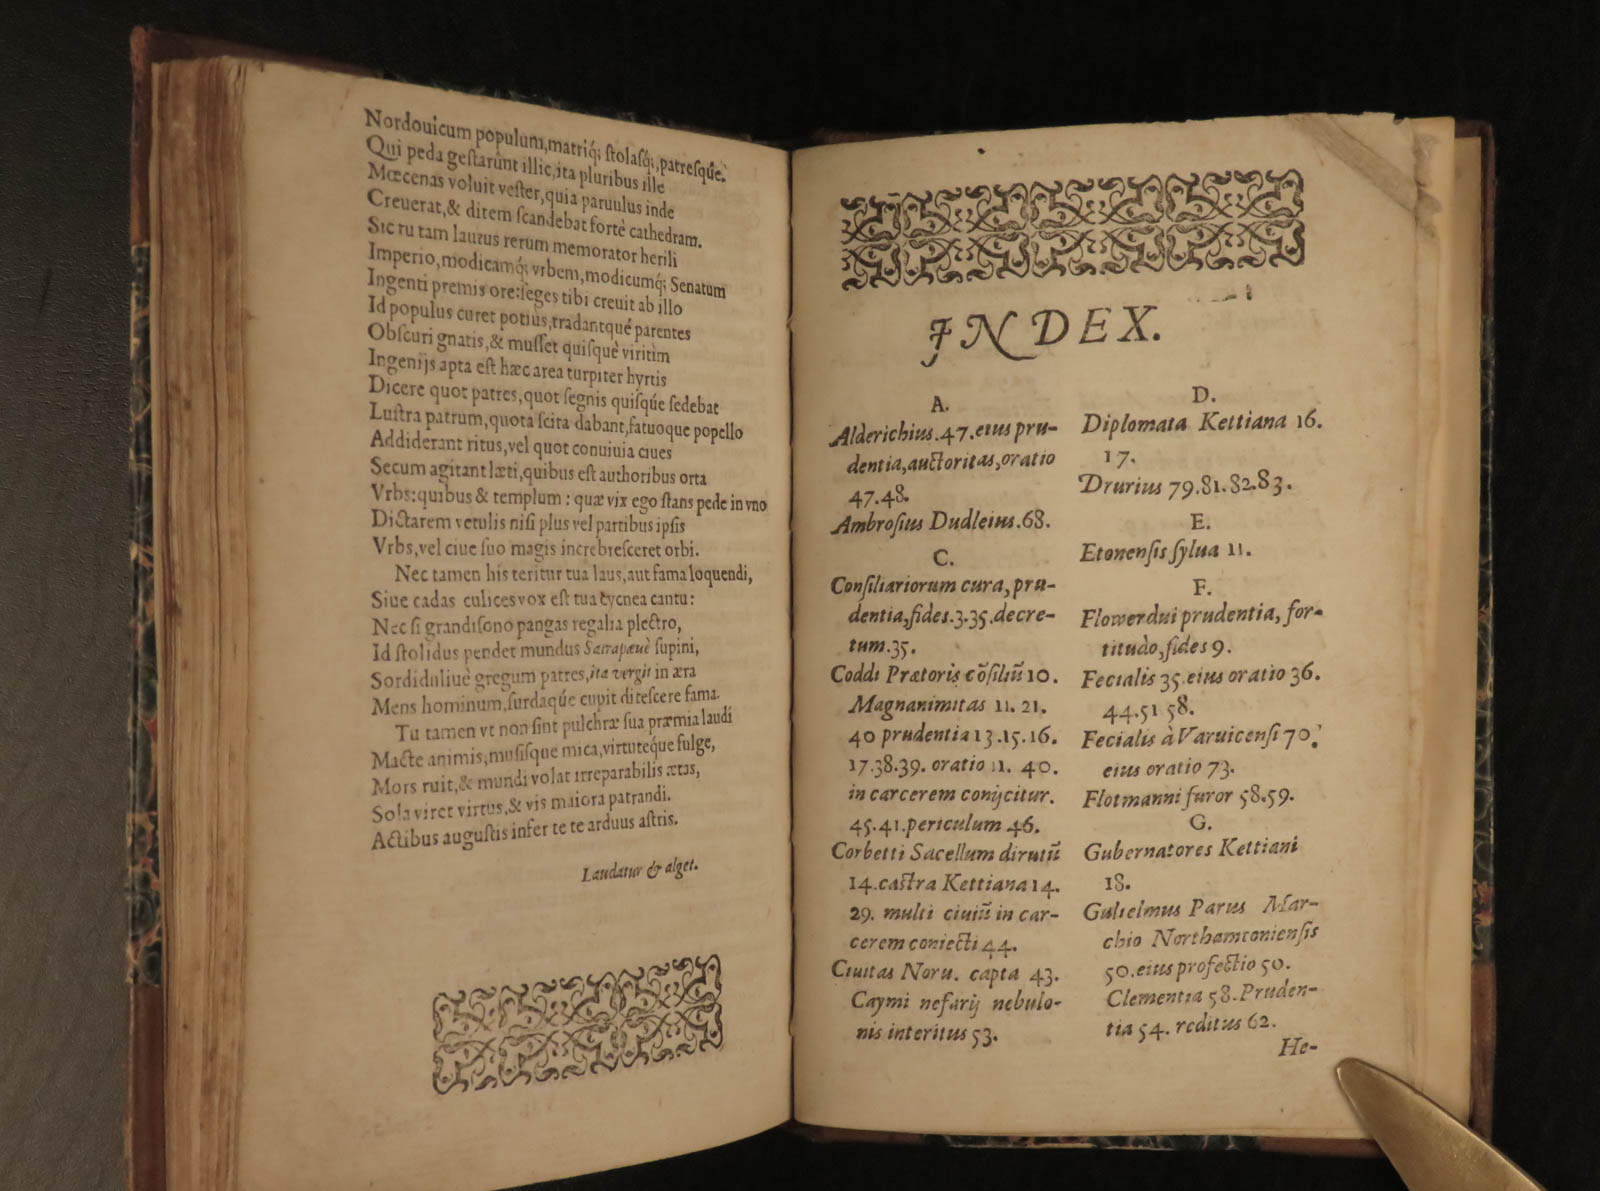 Nordouicum populum,matriq́; ſtolaſq́;,patreſqúe:
Qui peda geſtarûnt illic,ita pluribus ille
Mœcenas voluit veſter,quia paruulus inde
Creuerat,& ditem ſcandebat fortè cathedram.
Sic tu tam lautus rerum memorator herili
Imperio,modicamq́; vrbem,modicumq́; Senatum
Ingenti premis ore:ſeges tibi creuit ab illo
Id populus curet potiùs,tradantqué parentes
Obſcuri gnatis,& muſſet quiſquè viritìm
Ingenijs apta eſt hæc area turpiter hyrtis
Dicere quot patres,quot ſegnis quiſqúe ſedebat
Luſtra patrum,quota ſcita dabant,fatuoque popello
Addiderant ritus,vel quot conuiuia ciues
Secum agitant læti,quibus eſt authoribus orta
Vrbs:quibus & templum : quæ vix ego ſtans pede in vno
Dictarem vetulis niſi plus vel partibus ipſis
Vrbs,vel ciue ſuo magis increbreſceret orbi.
Nec tamen his teritur tua laus,aut fama loquendi,
Siue cadas culices vox eſt tua cycnea cantu:
Nec ſi grandiſono pangas regalia plectro,
Id ſtolidus pendet mundus Sacrapæuè ſupini,
Sordiduliuè gregum patres,ita vergit in æra
Mens hominum,ſurdaqúe cupit diteſcere fama.
Tu tamen vt non ſint pulchræ ſua præmia laudi
Macte animis,muſiſque mica,virtuteqúe fulge,
Mors ruit,& mundi volat irreparabilis ætas,
Sola viret virtus,& vis maiora patrandi.
Actibus auguſtis infer te te arduus aſtris.
Laudatur & alget.
INDEX.
A.
Alderichius.47.eius pru-
dentia,auctoritas,oratio
47.48.
Ambroſius Dudleius.68.
C.
Conſiliariorum cura, pru-
dentia,fides.3.35.decre-
tum.35.
Coddi Prætoris cõſiliũ 10.
Magnanimitas 11. 21.
40 prudentia 13.15.16.
17.38.39. oratio 11. 40.
in carcerem conijcitur.
45.41.periculum 46.
Corbetti Sacellum dirutũ
14.caſtra Kettiana 14.
29. multi ciuiũ in car-
cerem coniecti 44.
Ciuitas Noru. capta 43.
Caymi nefarij nebulo-
nis interitus 53.
D.
Diplomata Kettiana 16.
17.
Drurius 79.81.82.83.
E.
Etonenſis ſylua 11.
F.
Flowerdui prudentia, for-
titudo,fides 9.
Fecialis 35.eius oratio 36.
44.51 58.
Fecialis à Varuicenſi 70.
eius oratio 73.
Flotmanni furor 58.59.
G.
Gubernatores Kettiani
18.
Gulielmus Parus Mar-
chio Northamtonienſis
50.eius profectio 50.
Clementia 58.Pruden-
tia 54. reditus 62.
He-